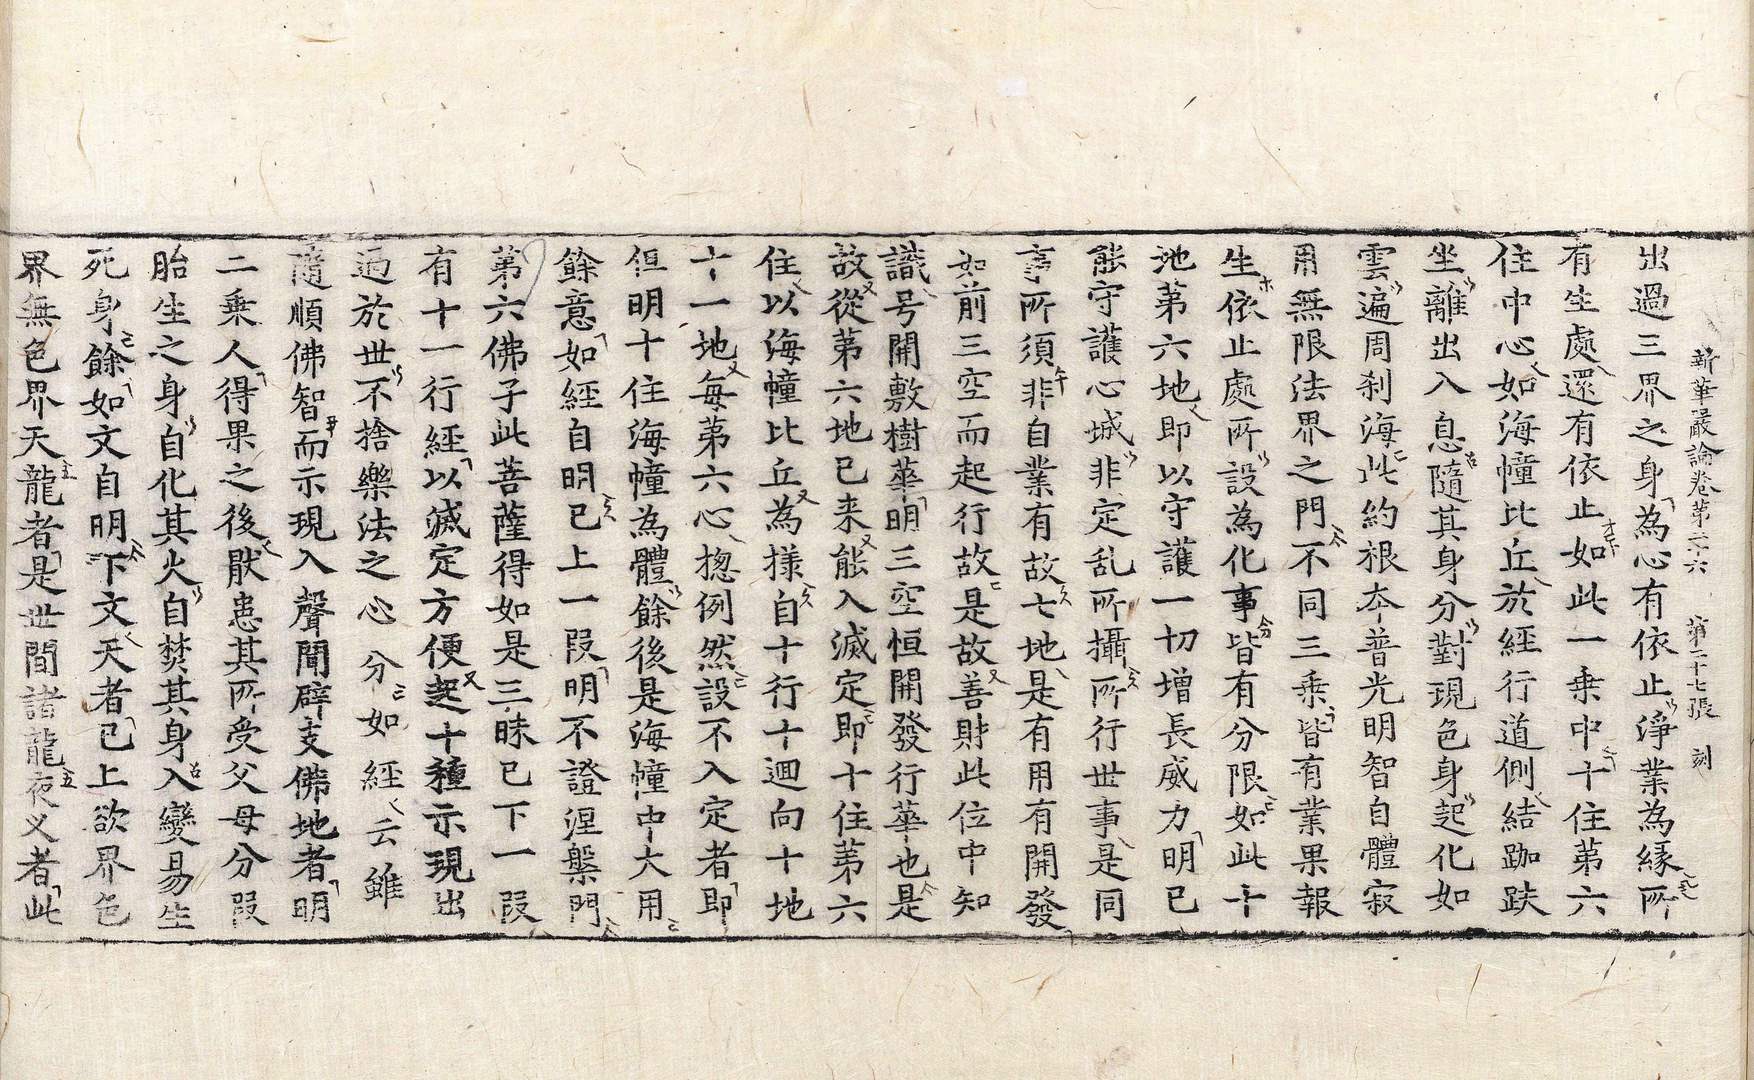 新華嚴論卷第三十六　第二十七張　刻
出過三界之身為心有依止淨業為緣所
有生處還有依止如此一乗中十住第六
住中心如海幢比丘於經行道側結跏趺
坐離出入息隨其身分對現色身起化如
雲遍周刹海此約根夲普光明智自體寂
用無限法界之門不同三乗皆有業果報
生依止處所設為化事皆有分限如此十
地第六地即以守護一切增長威力明已
能守護心城非定乱所攝所行世事是同
事所須非自業有故七地是有用有開發
如前三空而起行故是故善財此位中知
識号開敷樹華明三空恒開發行華也是
故從第六地已来能入滅定即十住第六
住以海幢比丘為樣自十行十迴向十地
十一地每第六心揔例然設不入定者即
但明十住海幢為體餘後是海幢中大用
餘意如經自明已上一段明不證涅槃門
第六佛子此菩薩得如是三昧已下一段
有十一行經以滅定方便起十種示現出
過於世不捨樂法之心分如經云雖
隨順佛智而示現入聲聞辟支佛地者明
二乗人得果之後猒患其所受父母分段
胎生之身自化其火自焚其身入變易生
死身餘如文自明下文天者已上欲界色
界無色界天龍者是世間諸龍夜叉者此